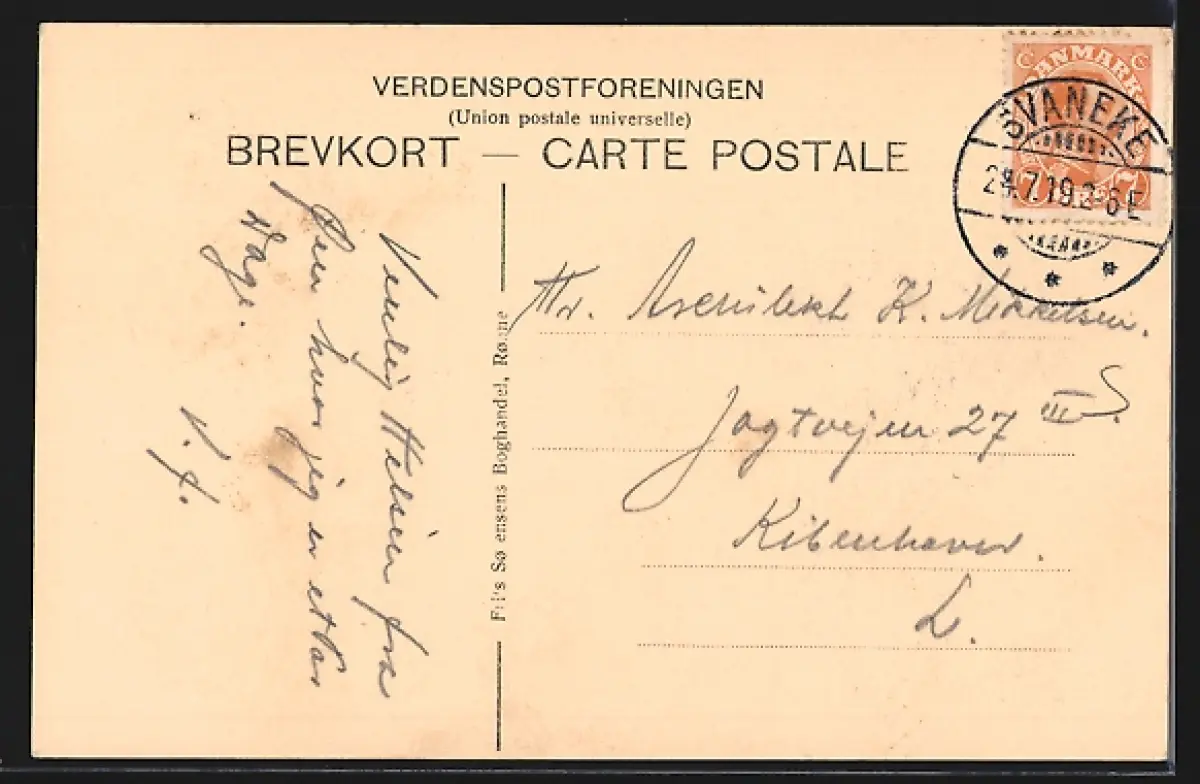 VERDENSPOSTFORENINGEN
(Union postale universelle)
BREVKORT — CARTE POSTALE
DANMARK
7 7
SVANEKE
7.19.2-6E
Venlig Hilsen fra
Øen hvor jeg er et Par
Dage.
V. J.
Frits Sørensens Boghandel, Rønne
Hr. Architekt K. Mikkelsen.
Jagtvejen 27 III S.
Kibenhavn.
L.